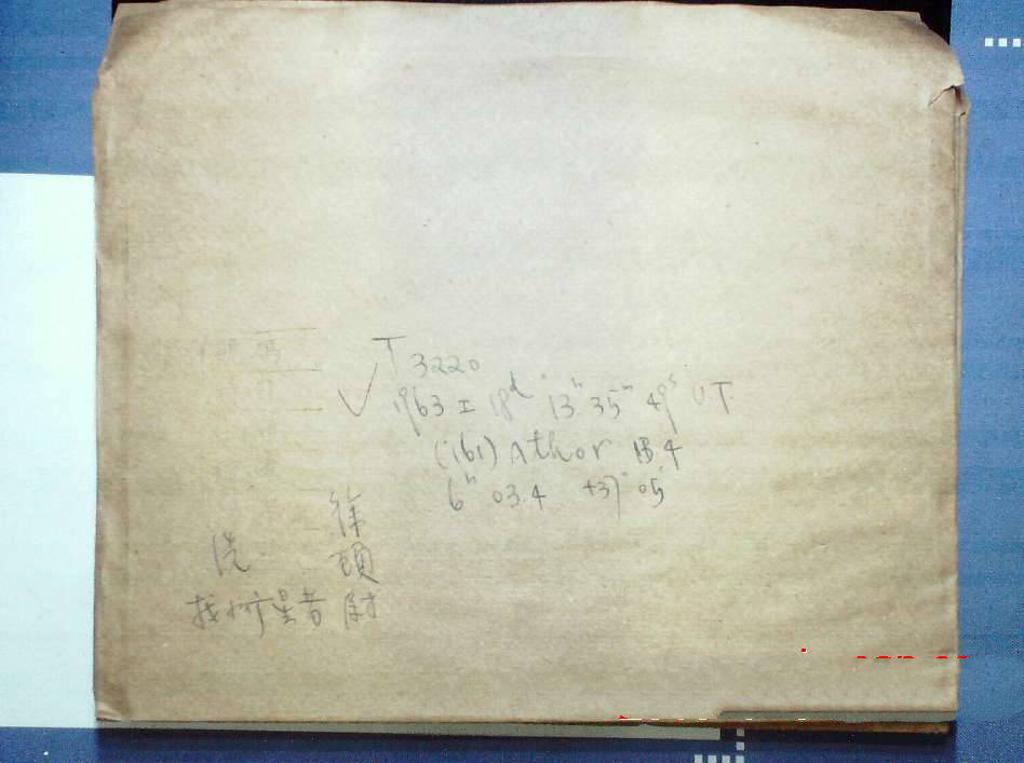 T 3220
1963 I 18d 13h 35m 49s U.T.
(161) Athor 13.4
6h 03.4 +37° 05'
徐
洗 頭
找小行星者